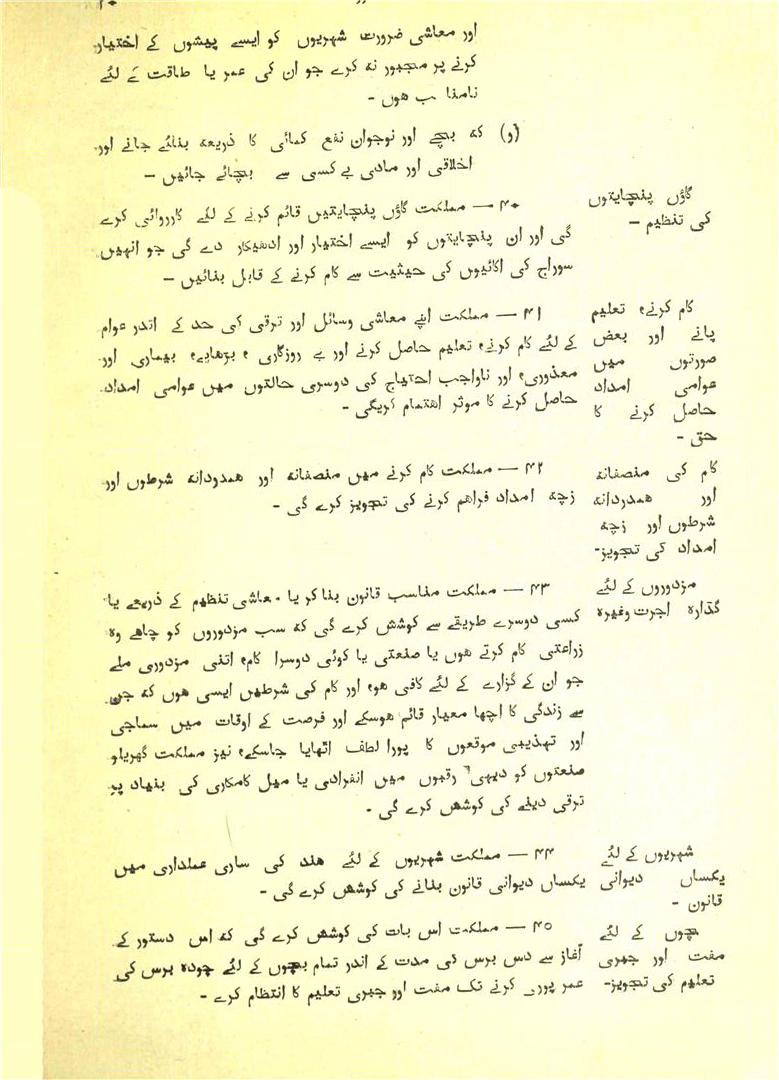 ۲۰
اور معاشی ضرورت شہریوں کو ایسے پیشوں کے اختیار
کرنے پر مجبور نہ کرے جو ان کی عمر یا طاقت کے لئے
نامناسب ہوں -
(و) کہ بچے اور نوجوان نفع کمائی کا ذریعہ بنائے جانے اور
اخلاقی اور مادی بے کسی سے بچائے جائیں —
گاؤں پنچایتوں
کی تنظیم —
۴۰ — مملکت گاؤں پنچایتیں قائم کرنے کے لئے کارروائی کرے
گی اور ان پنچایتوں کو ایسے اختیار اور ادھیکار دے گی جو انہیں
سوراج کی اکائیوں کی حیثیت سے کام کرنے کے قابل بنائیں —
کام کرنے، تعلیم
پانے اور بعض
صورتوں میں
عوامی امداد
حاصل کرنے کا
حق -
۴۱ — مملکت اپنے معاشی وسائل اور ترقی کی حد کے اندر عوام
کے لئے کام کرنے، تعلیم حاصل کرنے اور بے روزگاری، بڑھاپے، بیماری اور
معذوری، اور ناواجب احتیاج کی دوسری حالتوں میں عوامی امداد
حاصل کرنے کا موثر اہتمام کریگی -
کام کی منصفانہ
اور ہمدردانہ
شرطوں اور زچہ
امداد کی تجویز-
۴۲ — مملکت کام کرنے میں منصفانہ اور ہمدودانہ شرطوں اور
زچہ امداد فراہم کرنے کی تجویز کرے گی -
مزدوروں کے لئے
گذارہ اجرت وغیرہ
۴۳ — مملکت مناسب قانون بنا کر یا معاشی تنظیم کے ذریعے یا
کسی دوسرے طریقے سے کوشش کرے گی کہ سب مزدوروں کو چاہے وہ
زراعتی کام کرتے ہوں یا صنعتی یا کوئی دوسرا کام، اتنی مزدوری ملے
جو ان کے گزارے کے لئے کافی ہو، اور کام کی شرطیں ایسی ہوں کہ جن
سے زندگی کا اچھا معیار قائم ہوسکے اور فرصت کے اوقات میں سماجی
اور تہذیبی موقعوں کا پورا لطف اٹھایا جاسکے، نیز مملکت گھریلو
صنعتوں کو دیہی رقبوں میں انفرادی یا میل کامکاری کی بنیاد پر
ترقی دینے کی کوشش کرے گی -
شہریوں کے لئے
یکساں دیوانی
قانون -
۴۴ — مملکت شہریوں کے لئے ہند کی ساری عملداری میں
یکساں دیوانی قانون بنانے کی کوشش کرے گی -
بچوں کے لئے
مفت اور جبری
تعلیم کی تجویز-
۴۵ — مملکت اس بات کی کوشش کرے گی کہ اس دستور کے
آغاز سے دس برس کی مدت کے اندر تمام بچوں کے لئے چودہ برس کی
عمر پوری کرنے تک مفت اور جبری تعلیم کا انتظام کرے -